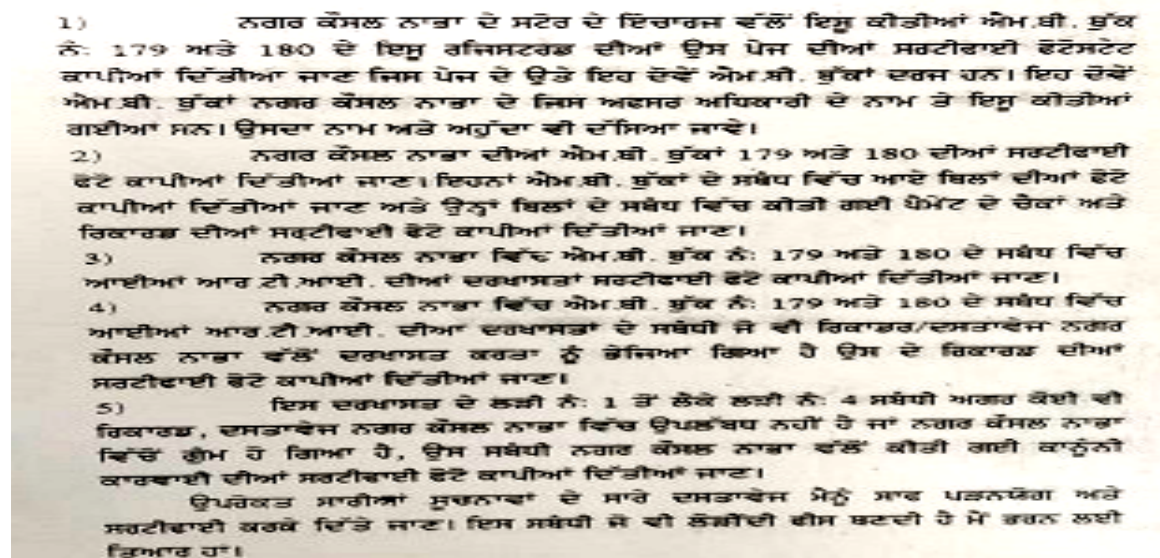 1) ਨਗਰ ਕੌਂਸਲ ਨਾਭਾ ਦੇ ਸਟੋਰ ਦੇ ਇੰਚਾਰਜ ਵੱਲੋਂ ਇਸੂ ਕੀਤੀਆਂ ਐਮ.ਬੀ. ਬੁੱਕ
ਨੰ: 179 ਅਤੇ 180 ਦੇ ਇਸੂ ਰਜਿਸਟਰਡ ਦੀਆਂ ਉਸ ਪੇਜ ਦੀਆਂ ਸਰਟੀਫਾਈ ਫੋਟੋਸਟੇਟ
ਕਾਪੀਆਂ ਦਿੱਤੀਆ ਜਾਣ ਜਿਸ ਪੇਜ ਦੇ ਉਤੇ ਇਹ ਦੋਵੇਂ ਐਮ.ਬੀ. ਬੁੱਕਾਂ ਦਰਜ ਹਨ। ਇਹ ਦੋਵੇਂ
ਐਮ.ਬੀ. ਬੁੱਕਾਂ ਨਗਰ ਕੌਂਸਲ ਨਾਭਾ ਦੇ ਜਿਸ ਅਫਸਰ ਅਧਿਕਾਰੀ ਦੇ ਨਾਮ ਤੇ ਇਸੂ ਕੀਤੀਆਂ
ਗਈਆਂ ਸਨ। ਉਸਦਾ ਨਾਮ ਅਤੇ ਅਹੁੱਦਾ ਵੀ ਦੱਸਿਆ ਜਾਵੇ।
2) ਨਗਰ ਕੌਂਸਲ ਨਾਭਾ ਦੀਆਂ ਐਮ.ਬੀ. ਬੁੱਕਾਂ 179 ਅਤੇ 180 ਦੀਆਂ ਸਰਟੀਫਾਈ
ਫੋਟੋ ਕਾਪੀਆਂ ਦਿੱਤੀਆਂ ਜਾਣ। ਇਹਨਾਂ ਐਮ.ਬੀ. ਬੁੱਕਾਂ ਦੇ ਸਬੰਧ ਵਿੱਚ ਆਏ ਬਿਲਾਂ ਦੀਆਂ ਫੋਟੋ
ਕਾਪੀਆਂ ਦਿੱਤੀਆਂ ਜਾਣ ਅਤੇ ਉਨ੍ਹਾਂ ਬਿਲਾਂ ਦੇ ਸਬੰਧ ਵਿੱਚ ਕੀਤੀ ਗਈ ਪੈਮੇਂਟ ਦੇ ਚੈਕਾਂ ਅਤੇ
ਰਿਕਾਰਡ ਦੀਆਂ ਸਰਟੀਫਾਈ ਫੋਟੋ ਕਾਪੀਆਂ ਦਿੱਤੀਆਂ ਜਾਣ।
3) ਨਗਰ ਕੌਂਸਲ ਨਾਭਾ ਵਿੱਚ ਐਮ.ਬੀ. ਬੁੱਕ ਨੰ: 179 ਅਤੇ 180 ਦੇ ਸਬੰਧ ਵਿੱਚ
ਆਈਆਂ ਆਰ.ਟੀ.ਆਈ. ਦੀਆਂ ਦਰਖਾਸਤਾਂ ਸਰਟੀਫਾਈ ਫੋਟੋ ਕਾਪੀਆਂ ਦਿੱਤੀਆਂ ਜਾਣ।
4) ਨਗਰ ਕੌਂਸਲ ਨਾਭਾ ਵਿੱਚ ਐਮ.ਬੀ. ਬੁੱਕ ਨੰ: 179 ਅਤੇ 180 ਦੇ ਸਬੰਧ ਵਿੱਚ
ਆਈਆਂ ਆਰ.ਟੀ.ਆਈ. ਦੀਆ ਦਰਖਾਸਤਾਂ ਦੇ ਸਬੰਧੀ ਜੋ ਵੀ ਰਿਕਾਡਰ/ਦਸਤਾਵੇਜ ਨਗਰ
ਕੌਂਸਲ ਨਾਭਾ ਵੱਲੋਂ ਦਰਖਾਸਤ ਕਰਤਾ ਨੂੰ ਭੇਜਿਆ ਗਿਆ ਹੈ ਉਸ ਦੇ ਰਿਕਾਰਡ ਦੀਆਂ
ਸਰਟੀਫਾਈ ਫੋਟੋ ਕਾਪੀਆਂ ਦਿੱਤੀਆਂ ਜਾਣ।
5) ਇਸ ਦਰਖਾਸਤ ਦੇ ਲੜੀ ਨੰ: 1 ਤੋਂ ਲੈਕੇ ਲੜੀ ਨੰ: 4 ਸਬੰਧੀ ਅਗਰ ਕੋਈ ਵੀ
ਰਿਕਾਰਡ, ਦਸਤਾਵੇਜ ਨਗਰ ਕੌਂਸਲ ਨਾਭਾ ਵਿੱਚ ਉਪਲੱਬਧ ਨਹੀਂ ਹੈ ਜਾਂ ਨਗਰ ਕੌਂਸਲ ਨਾਭਾ
ਵਿੱਚੋਂ ਗੁੰਮ ਹੋ ਗਿਆ ਹੈ, ਉਸ ਸਬੰਧੀ ਨਗਰ ਕੌਂਸਲ ਨਾਭਾ ਵੱਲੋਂ ਕੀਤੀ ਗਈ ਕਾਨੂੰਨੀ
ਕਾਰਵਾਈ ਦੀਆਂ ਸਰਟੀਫਾਈ ਫੋਟੋ ਕਾਪੀਆਂ ਦਿੱਤੀਆਂ ਜਾਣ।
ਉਪਰੋਕਤ ਸਾਰੀਆਂ ਸੂਚਨਾਵਾਂ ਦੇ ਸਾਰੇ ਦਸਤਾਵੇਜ ਮੈਨੂੰ ਸਾਫ ਪੜਨਯੋਗ ਅਤੇ
ਸਰਟੀਫਾਈ ਕਰਕੇ ਦਿੱਤੇ ਜਾਣ। ਇਸ ਸਬੰਧੀ ਜੋ ਵੀ ਲੋੜੀਂਦੀ ਫੀਸ ਬਣਦੀ ਹੈ ਮੈਂ ਭਰਨ ਲਈ
ਤਿਆਰ ਹਾਂ।